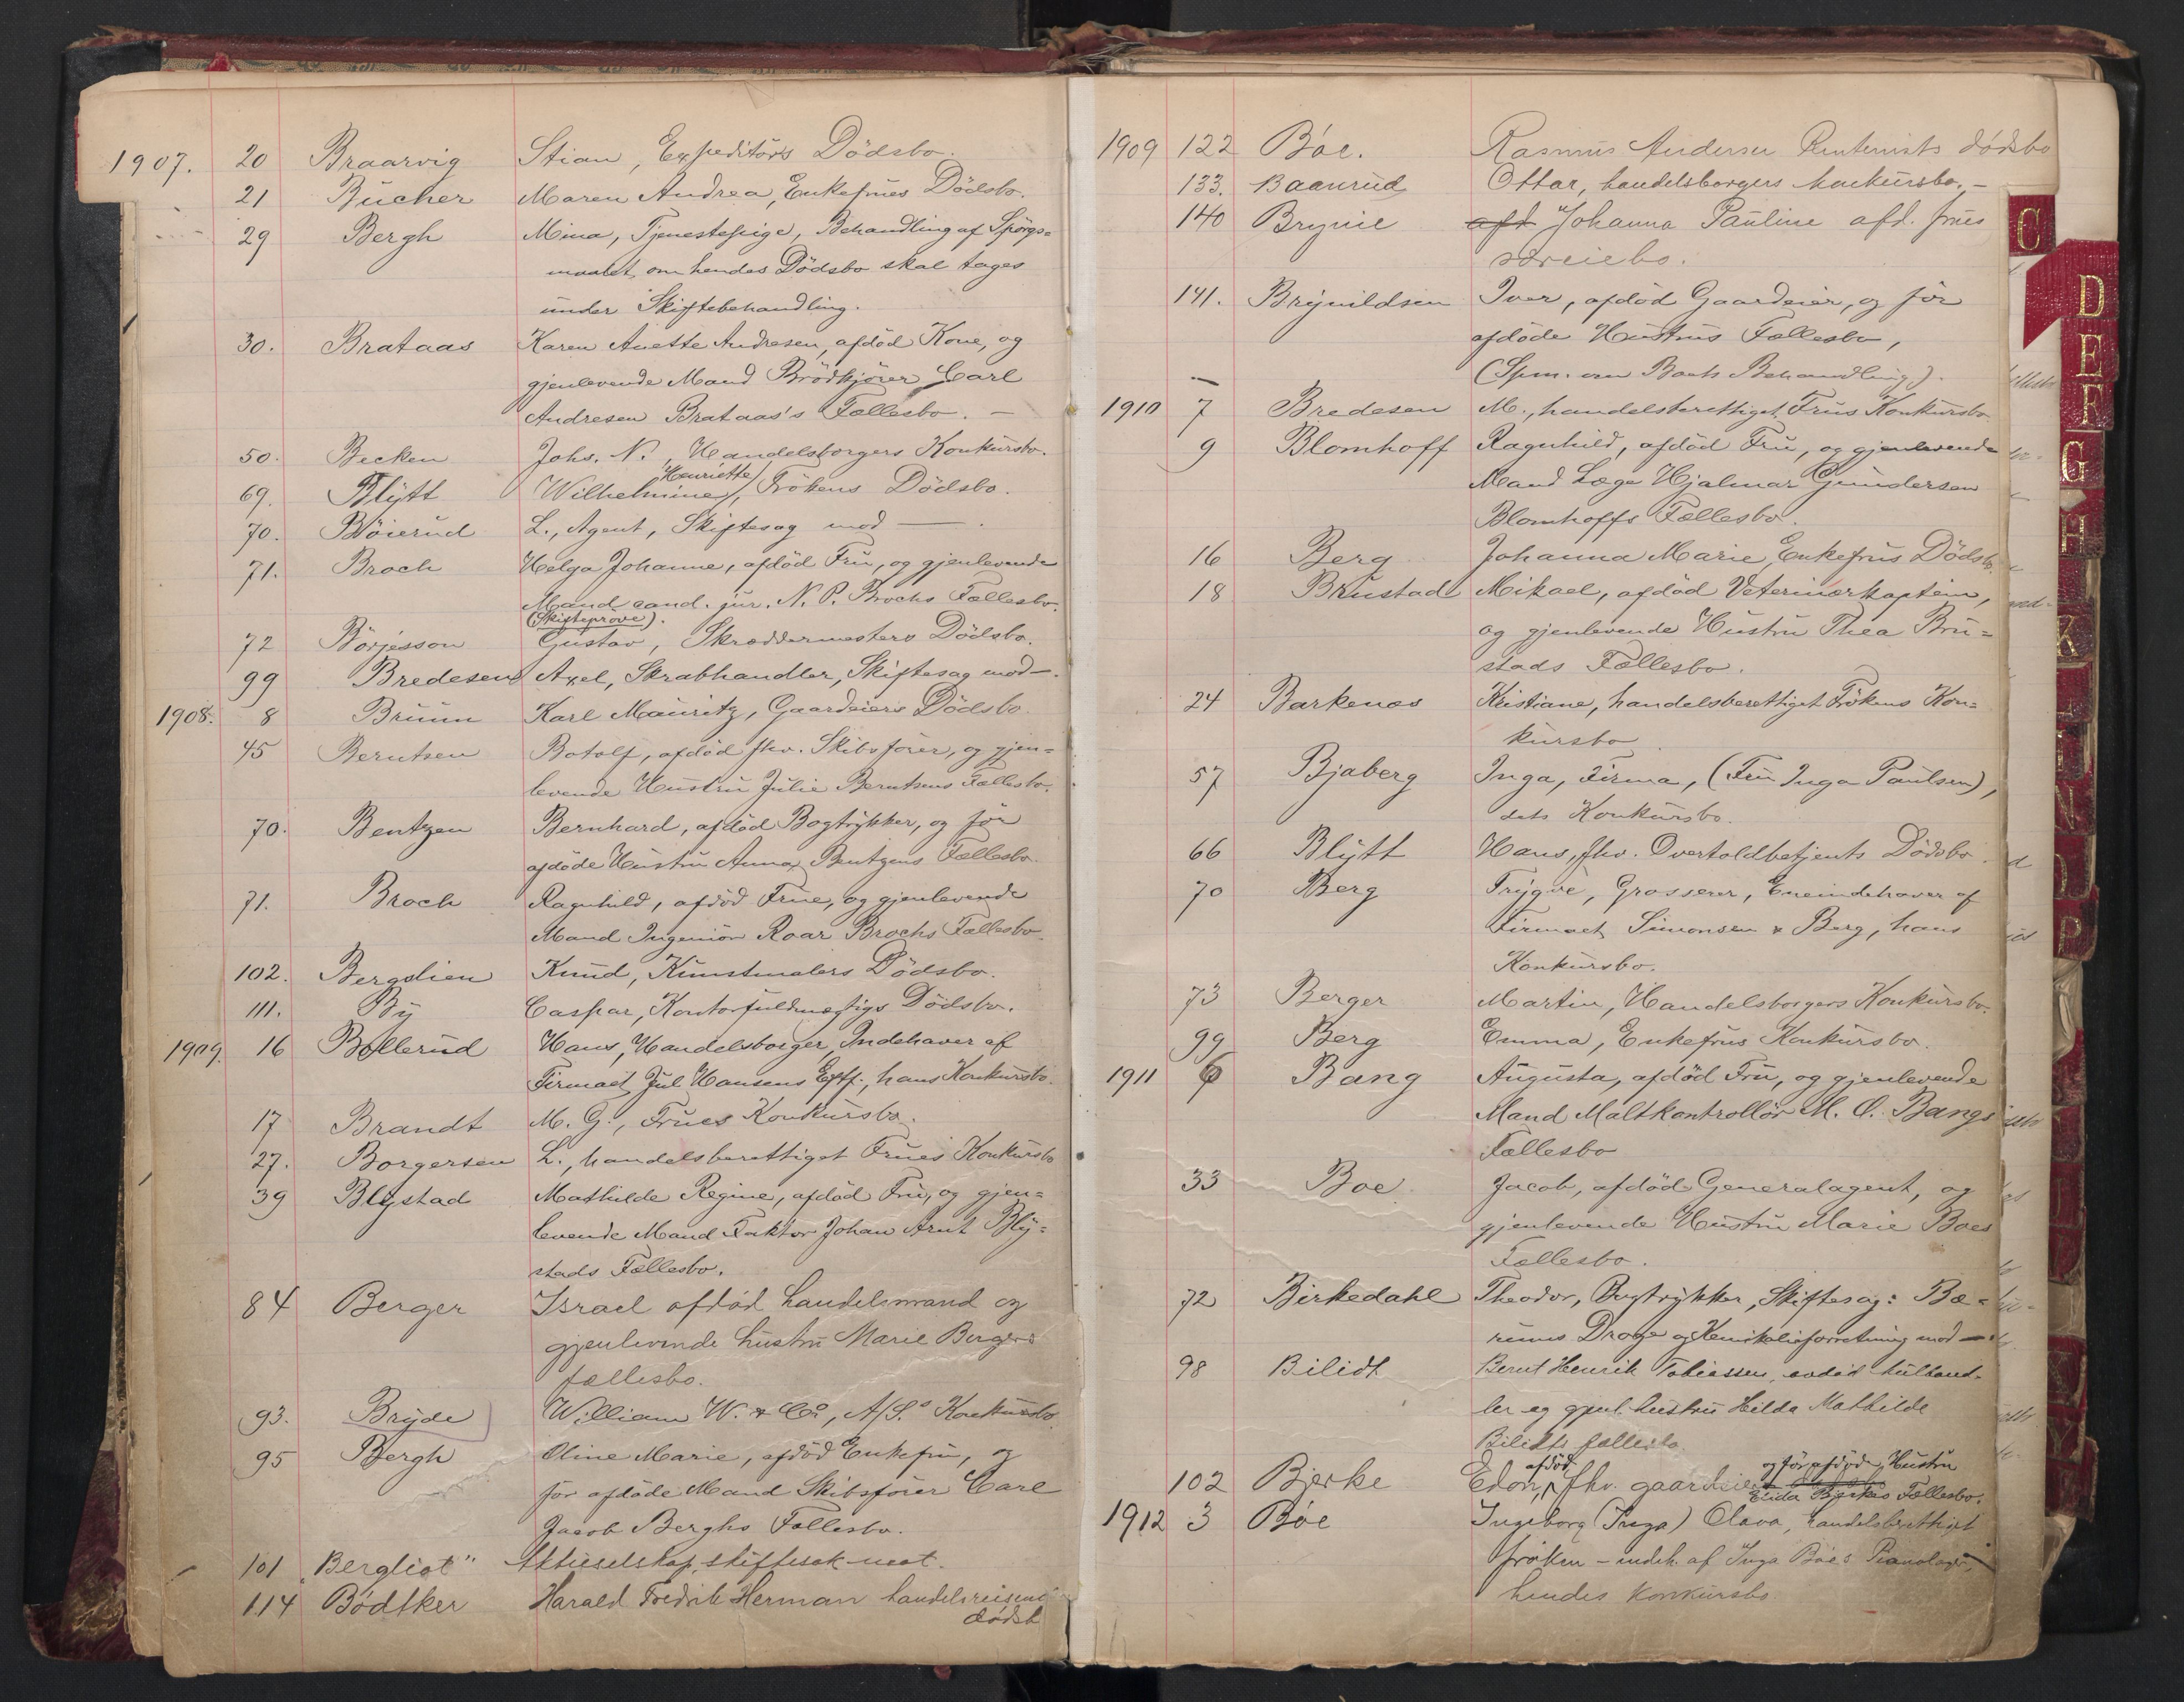 1907. 20 Braarvig Stian, Expeditörs Dödsbo.
21 Bücher Maren Andrea, Enkefrues Dödsbo.
29 Bergh Mina, Tjenestepige, Behandling af Spörgs=
maalet om hendes Dödsbo skal tages
under Skiftebehandling.
30. Brataas Karen Anette Andresen, afdöd Kone, og
gjenlevende Mand Brödkjörer Carl
Andresen Brataas's Fællesbo. —
50. Becken Johs. N., Handelsborgers Konkursbo.
69. Blytt Wilhelmine Henriette, Frökens Dödsbo.
70. Böierud L., Agent, Skiftesag mod —.
71. Broch Helga Johanne, afdöd Fru, og gjenlevende
Mand cand. jur. N. P. Brochs Fællesbo.
(Skifteprove).
72 Börjesson Gustav, Skræddermesters Dödsbo.
99 Bredesen Axel, Skrabhandler, Skiftesag mod —.
1908. 8 Bruun Karl Mauritz, Gaardeiers Dödsbo
45 Berntsen Botolf, afdöd fhv. Skibsförer, og gjen=
levende Hustru Julie Berntsens Fællesbo.
70. Bentzen Bernhard, afdöd Bogtrykker, og för
afdöde Hustru Anna Bentzens Fællesbo.
71. Broch Ragnhild, afdöd Frue, og gjenlevende
Mand Ingeniör Roar Brochs Fællesbo.
102. Bergslien Knud, Kunstmalers Dödsbo.
111. By Caspar, Kontorfuldmægtigs Dödsbo.
1909. 16 Bollerud Hans, Handelsborger, Indehaver af
Firmaet Jul Hansens Eftf., hans Konkursbo.
17 Brandt M. G., Frues Konkursbo.
27. Borgersen L., handelsberettiget Frues Konkursbo
39 Blystad Mathilde Regine, afdöd Fru, og gjen=
levende Mand Faktor Johan Arnt Bly=
stads Fællesbo.
84 Berger Israel afdød handelsmand og
gjenlevende hustru Marie Bergers
fællesbo.
93. Bryde William W. & Co, A/S. Konkursbo.
95 Bergh Oline Marie, afdöd Enkefru, og
för afdöde Mand Skibsförer Carl
Jacob Berghs Fællesbo.
101 "Bergliot" Aktieselskap, skiftesak mot.
114 Bødtker Harald Fredrik Herman handelsreisend
dødsb
1909 122 Bóe. Rasmus Andersen Rentenists dódsbo
133. Baanrud Ottar, handelsborgers konkursbo. —
140 Brynie afd Johanna Pauline afd. frues
særeiebo.
141. Brynildsen Iver, afdöd Gaardeier, og för
afdöde Hustrus Fællesbo,
(Spm. om Boets Behandling).
1910 7 Bredesen M., handelsberettiget Frus Konkursbo
9 Blomhoff Ragnhild, afdöd Fru, og gjenlevende
Mand Læge Hjalmar Gundersen
Blomhoffs Fællesbo.
16 Berg Johanna Marie, Enkefrus Dödsbo.
18 Brustad Mikael, afdöd Veterinærkaptein,
og gjenlevende Hustru Thea Bru=
stads Fællesbo.
24 Barkenæs Kristiane, handelsberettiget Frökens Kon=
kursbo.
57 Bjaberg Inga, Firma, (Fru Inga Paulsen),
dets Konkursbo.
66 Blytt Hans, fhv. Overtoldbetjents Dödsbo.
70 Berg Trygve, Grosserer, Eneindehaver af
Firmaet Simonsen & Berg, hans
Konkursbo.
73 Berger Martin, Handelsborgers Konkursbo.
99 Berg Emma, Enkefrus Konkursbo.
1911 6 Bang Augusta, afdöd Fru, og gjenlevende
Mand Maltkontrollör M. O. Bangs
Fællesbo
33 Boe Jacob, afdöd Generalagent, og
gjenlevende Hustru Marie Boes
Fællesbo.
72 Birkedahl Theodor, Bogtrykker, Skiftesag: Bæ=
rums Droge og Kemikalieforretning mod —
98 Bilidt Bernt Henrik Tobiassen, avdöd kulhand-
ler og gjenl. hustru Hilda Mathilde
Bilidts fællesbo.
102 Bjerke Edon, afdöd fhv. gaardeier og för afdöde Hustru
Elida Bjerkes Fællesbo.
1912 3 Bóe Ingeborg (Inga) Olava, handelsberettiget
frøken – indeh. af Inga Bóes Pianolager,
hendes konkursbo.
C
D
E
F
G
H
K
L
N
O
P